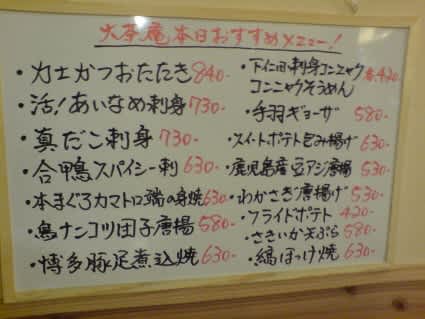 大茶庵本日おすすめメニュー!
・カツオたたき 840-
・活!あいなめ刺身 730-
・真だこ刺身 730-
・合鴨スパイシー刺 630-
・本まぐろカマトロ端の身焼 630-
・鳥ナンコツ団子唐揚 580-
・博多豚足煮込焼 630-
・下仁田刺身コンニャク
コンニャクそうめん 各420-
・手羽ギョーザ 580-
・スイートポテト包み揚げ 630-
・鹿児島産豆アジ唐揚 530-
・わかさぎ唐揚げ 530-
・フライドポテト 420-
・さきいか天ぷら 580-
・縞ほっけ焼 630-